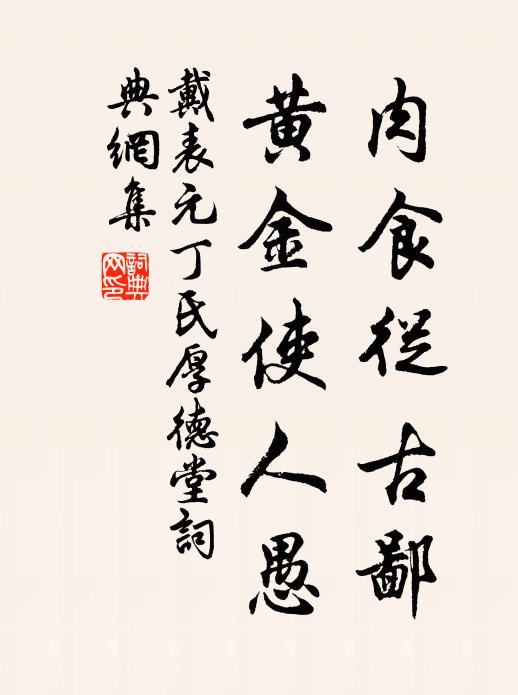 肉食從古鄙
黃金使人愚
戴表元丁氏厚德堂詞
典網集
詞典
网印